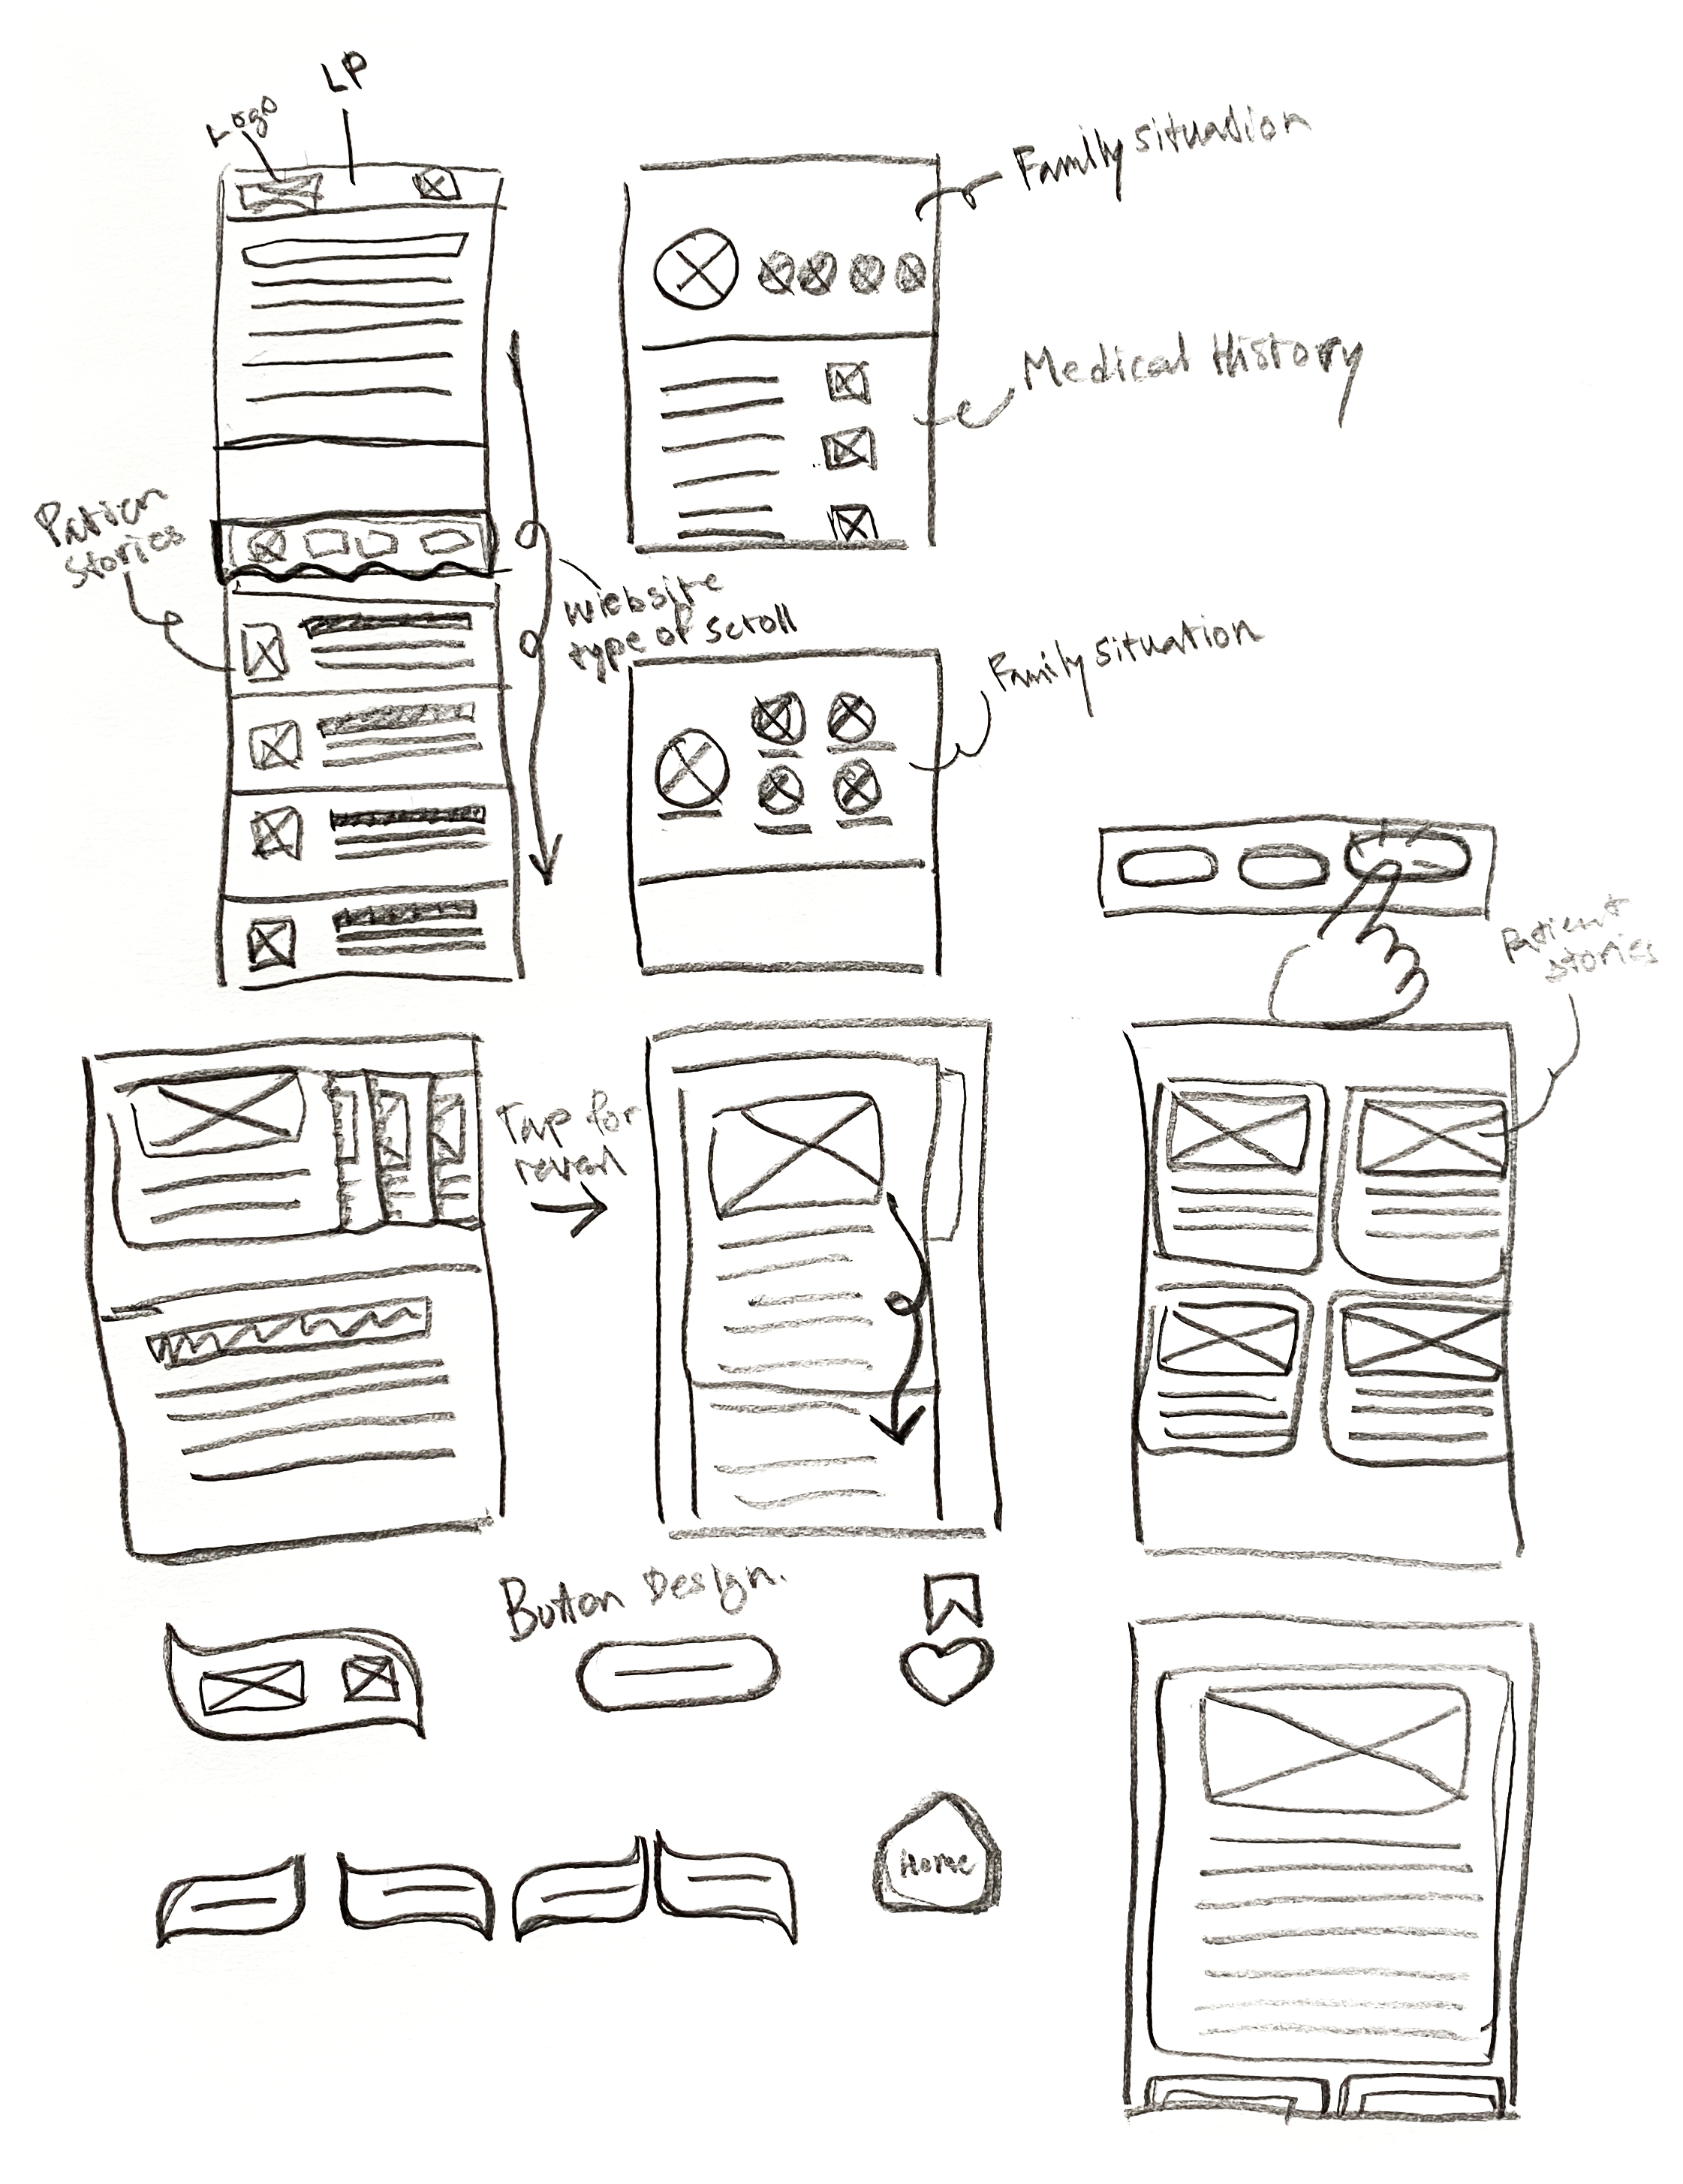 LP
Logo
Family situation
Medical History
Patien
Stories
wiebsite
type of scroll
Family situation
Patient
Stories
Tap for
reveal
Button Design.
Home